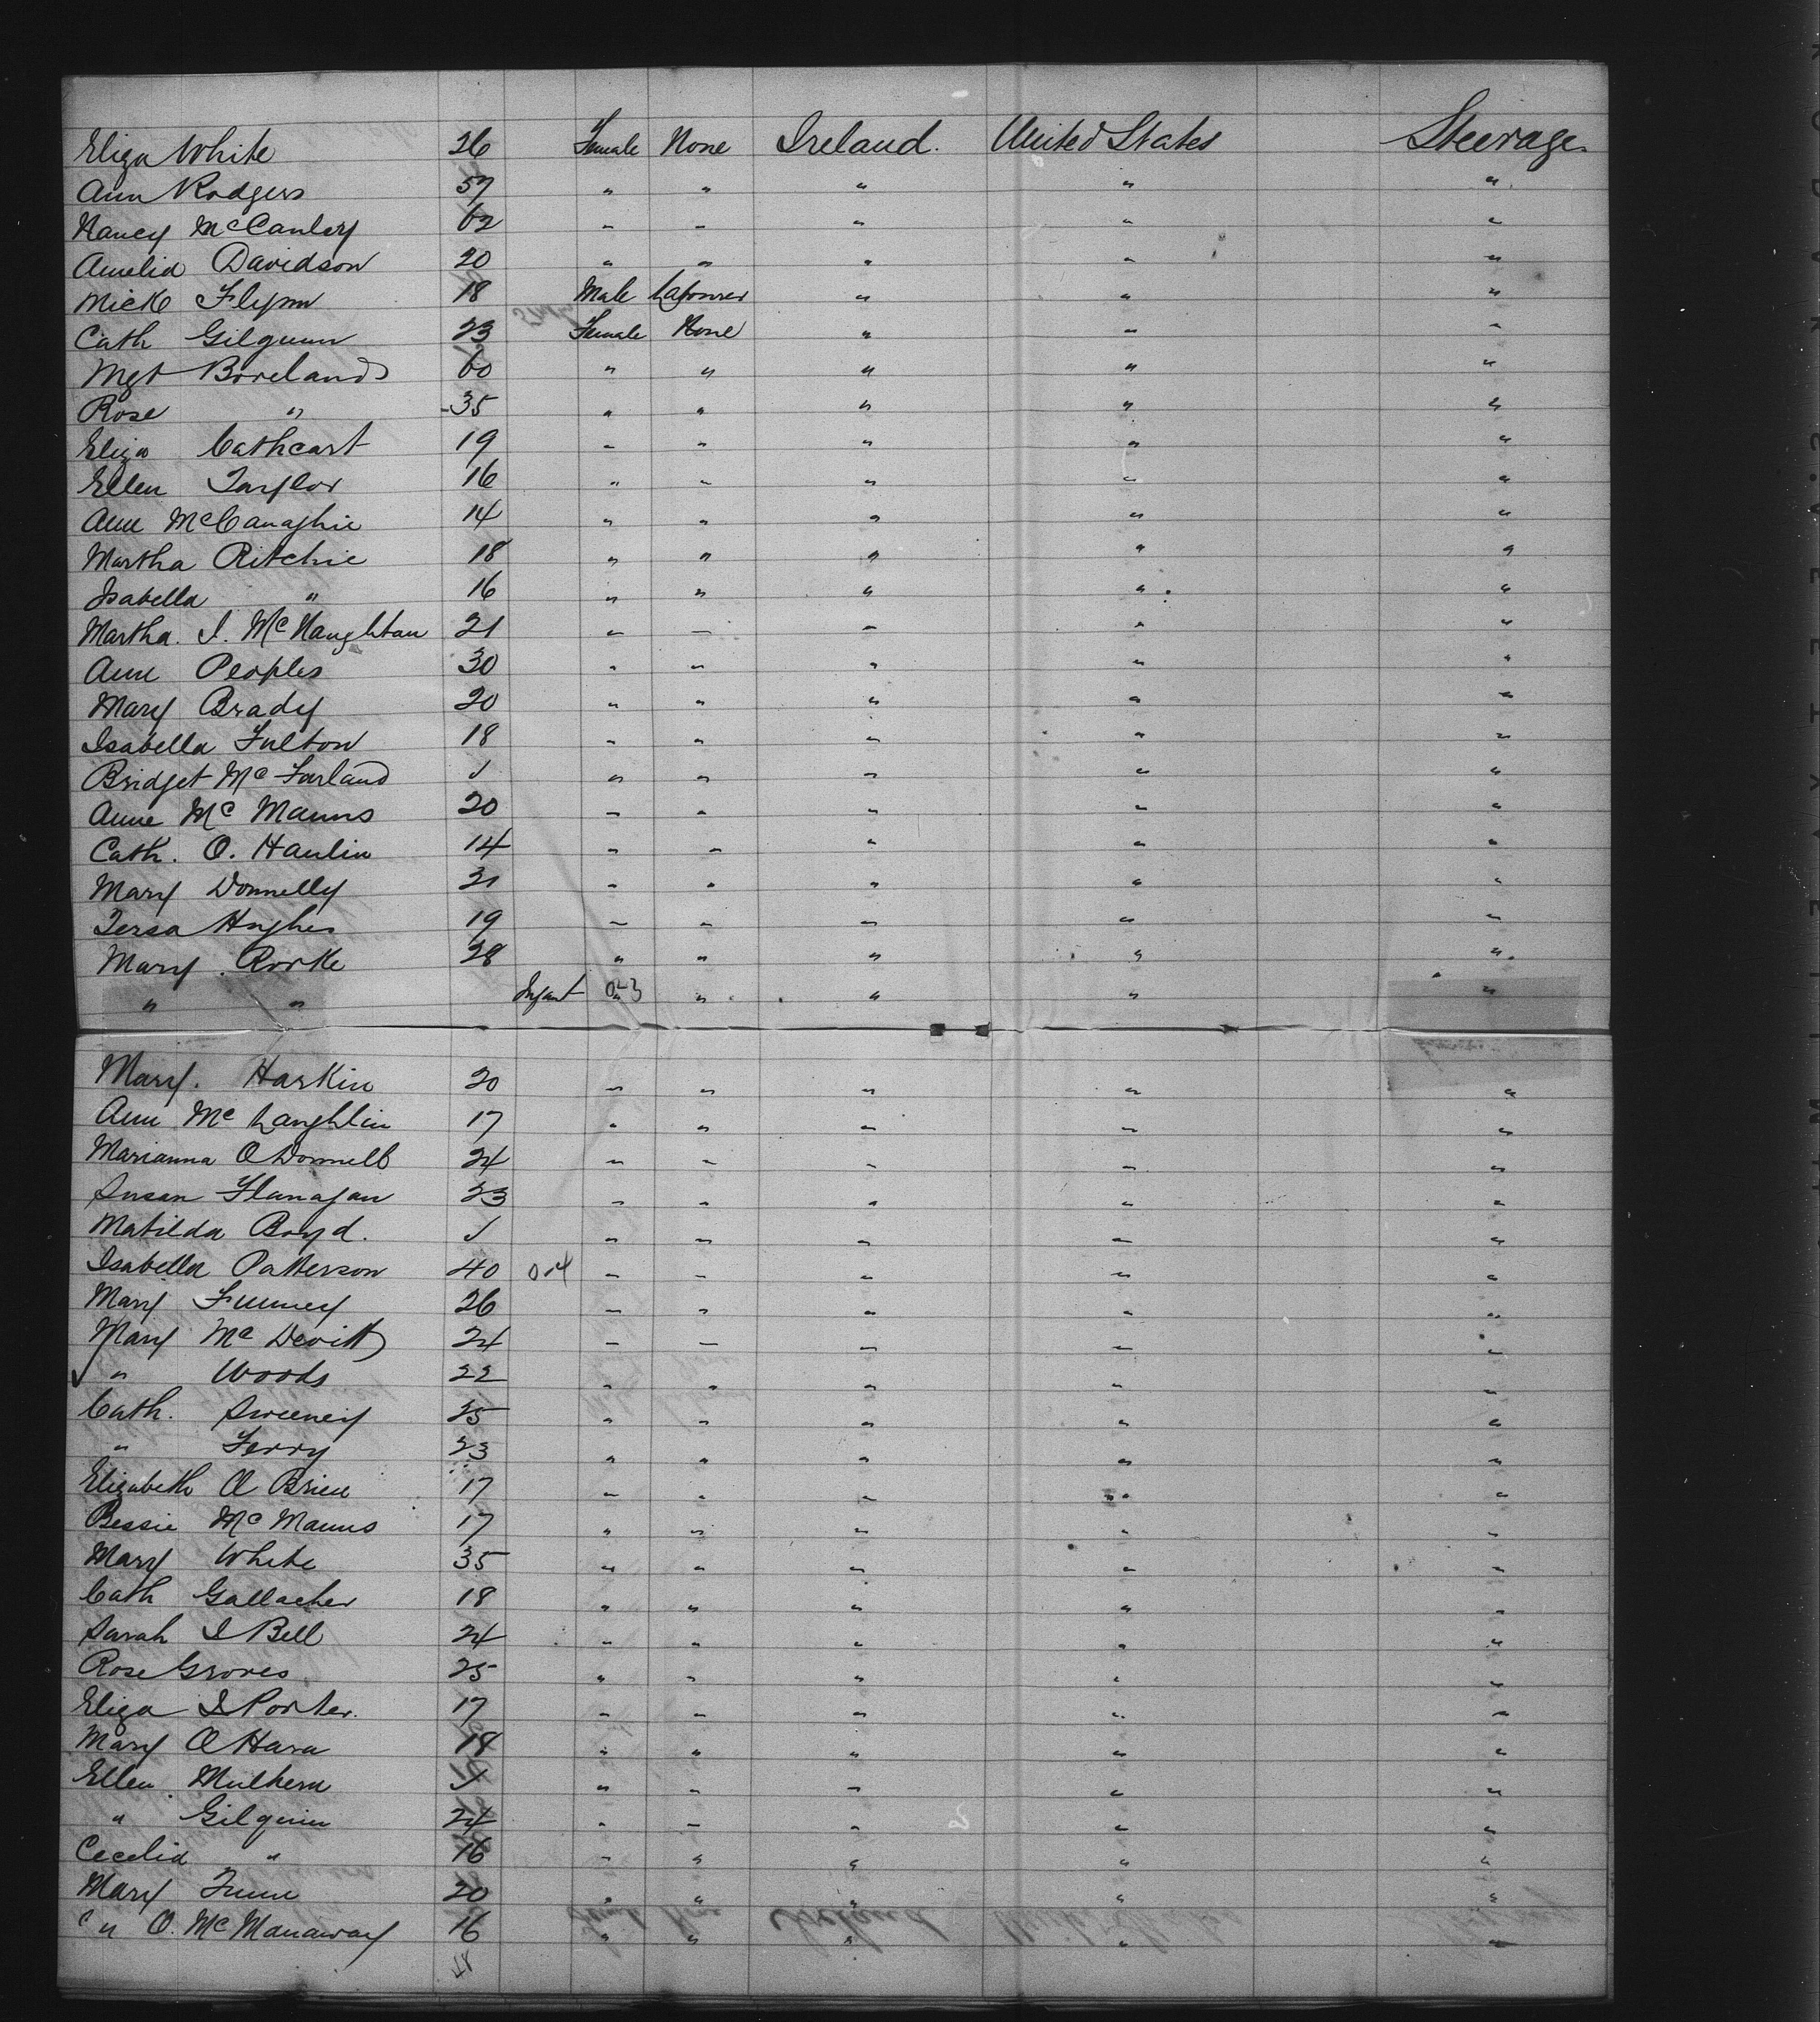 Eliza White 26 Female None Ireland. United States Steerage
Ann Rodgers 57 " " " " "
Nancy McCauley 62 " " " " "
Amelia Davidson 20 " " " " "
Mick Flynn 18 Male Labourer " " "
Cath Gilgunn 23 Female None " " "
Mgt Borelands 60 " " " " "
Rose " 35 " " " " "
Eliza Cathcart 19 " " " " "
Ellen Taylor 16 " " " " "
Ann McConaghie 14 " " " " "
Martha Ritchie 18 " " " " "
Isabella " 16 " " " " "
Martha J. McNaughtan 21 " " " " "
Ann Peoples 30 " " " " "
Mary Brady 20 " " " " "
Isabella Fulton 18 " " " " "
Bridget McFarland √ " " " " "
Anne McManus 20 " " " " "
Cath. O. Hanlin 14 " " " " "
Mary Donnelly 21 " " " " "
Tersa Hughes 19 " " " " "
Mary Rorke 28 " " " " "
" " Infant " " " " "
Mary. Harkin 20 " " " " "
Ann McLaughlin 17 " " " " "
Marianna O Donnell 24 " " " " "
Susan Flanagan 23 " " " " "
Matilda Boyd. √ " " " " "
Isabella Patterson 40 " " " " "
Mary 26 " " " " "
Mary McDevitt 24 " " " " "
" Woods 22 " " " " "
Cath. Sweeney 25 " " " " "
" Ferry 23 " " " " "
Elizabeth O Brien 17 " " " " "
Bessie McManus 17 " " " " "
Mary White 35 " " " " "
Cath Gallacher 18 " " " " "
Sarah J Bell 24 " " " " "
Rose Groves 25 " " " " "
Eliza J Porter. 17 " " " " "
Mary O Hara 18 " " " " "
Ellen Mulhern √ " " " " "
" Gilgunn 24 " " " " "
Cecelia " 16 " " " " "
Mary 20 " " " " "
" O. McManaway 16 " " " " "
48